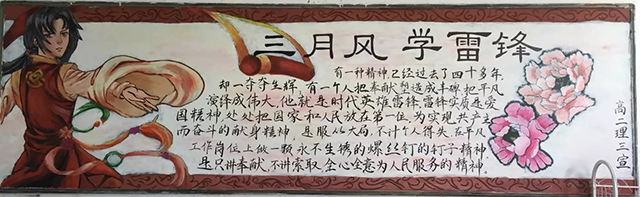 三月风 学雷锋
有一种精神,已经过去了四十多年,
却一夺夺生辉,有一个人把奉献塑造成丰碑把平凡
演绎成伟大,他就是时代英雄雷锋.雷锋实质是爱
国精神处处把国家和人民放在第一位为实现共产主
而奋斗的献身精神,是服从大局,不计个人得失,在平凡
工作岗位上做一颗永不生锈的螺丝钉的钉子精神
是只讲奉献,不讲索取,全心全意为人民服务的精神.
高二理三宣